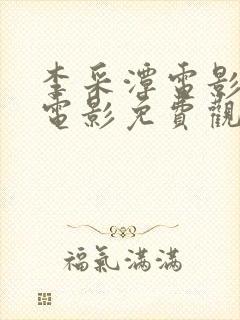 李采潭電影
電影免費觀
福氣滿滿